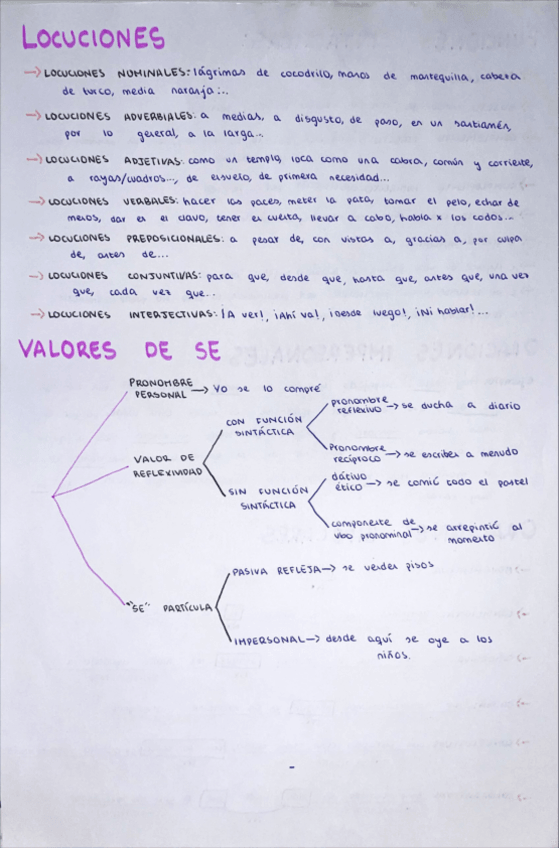 LOCUCIONES
→ LOCUCIONES NOMINALES: lágrimas de cocodrilo, manos de mantequilla, cabeza
de turco, media naranja...
→ LOCUCIONES ADVERBIALES: a medias, a disgusto, de paso, en un santiamén,
por lo general, a la larga...
→ LOCUCIONES ADJETIVAS: como un templo, loca como una cabra, común y corriente,
a rayas/cuadros..., de ensueño, de primera necesidad...
→ LOCUCIONES VERBALES: hacer las paces, meter la pata, tomar el pelo, echar de
menos, dar en el clavo, tener en cuenta, llevar a cabo, habla x los codos...
→ LOCUCIONES PREPOSICIONALES: a pesar de, con vistas a, gracias a, por culpa
de, antes de...
→ LOCUCIONES CONJUNTIVAS: para que, desde que, hasta que, antes que, una vez
que, cada vez que...
→ LOCUCIONES INTERJECTIVAS: ¡A ver!, ¡Ahí va!, ¡Desde luego!, ¡Ni hablar!...
VALORES DE SE
PRONOMBRE
PERSONAL → Yo se lo compré
VALOR DE
REFLEXIVIDAD
CON FUNCIÓN
SINTÁCTICA
pronombre
reflexivo → se ducha a diario
Pronombre
recíproco → se escriben a menudo
SIN FUNCIÓN
SINTÁCTICA
dátivo
ético → se comió todo el pastel
componente de
vbo pronominal → se arrepintió al
momento
"SE" PARTÍCULA
PASIVA REFLEJA → se venden pisos
IMPERSONAL → desde aquí se oye a los
niños.